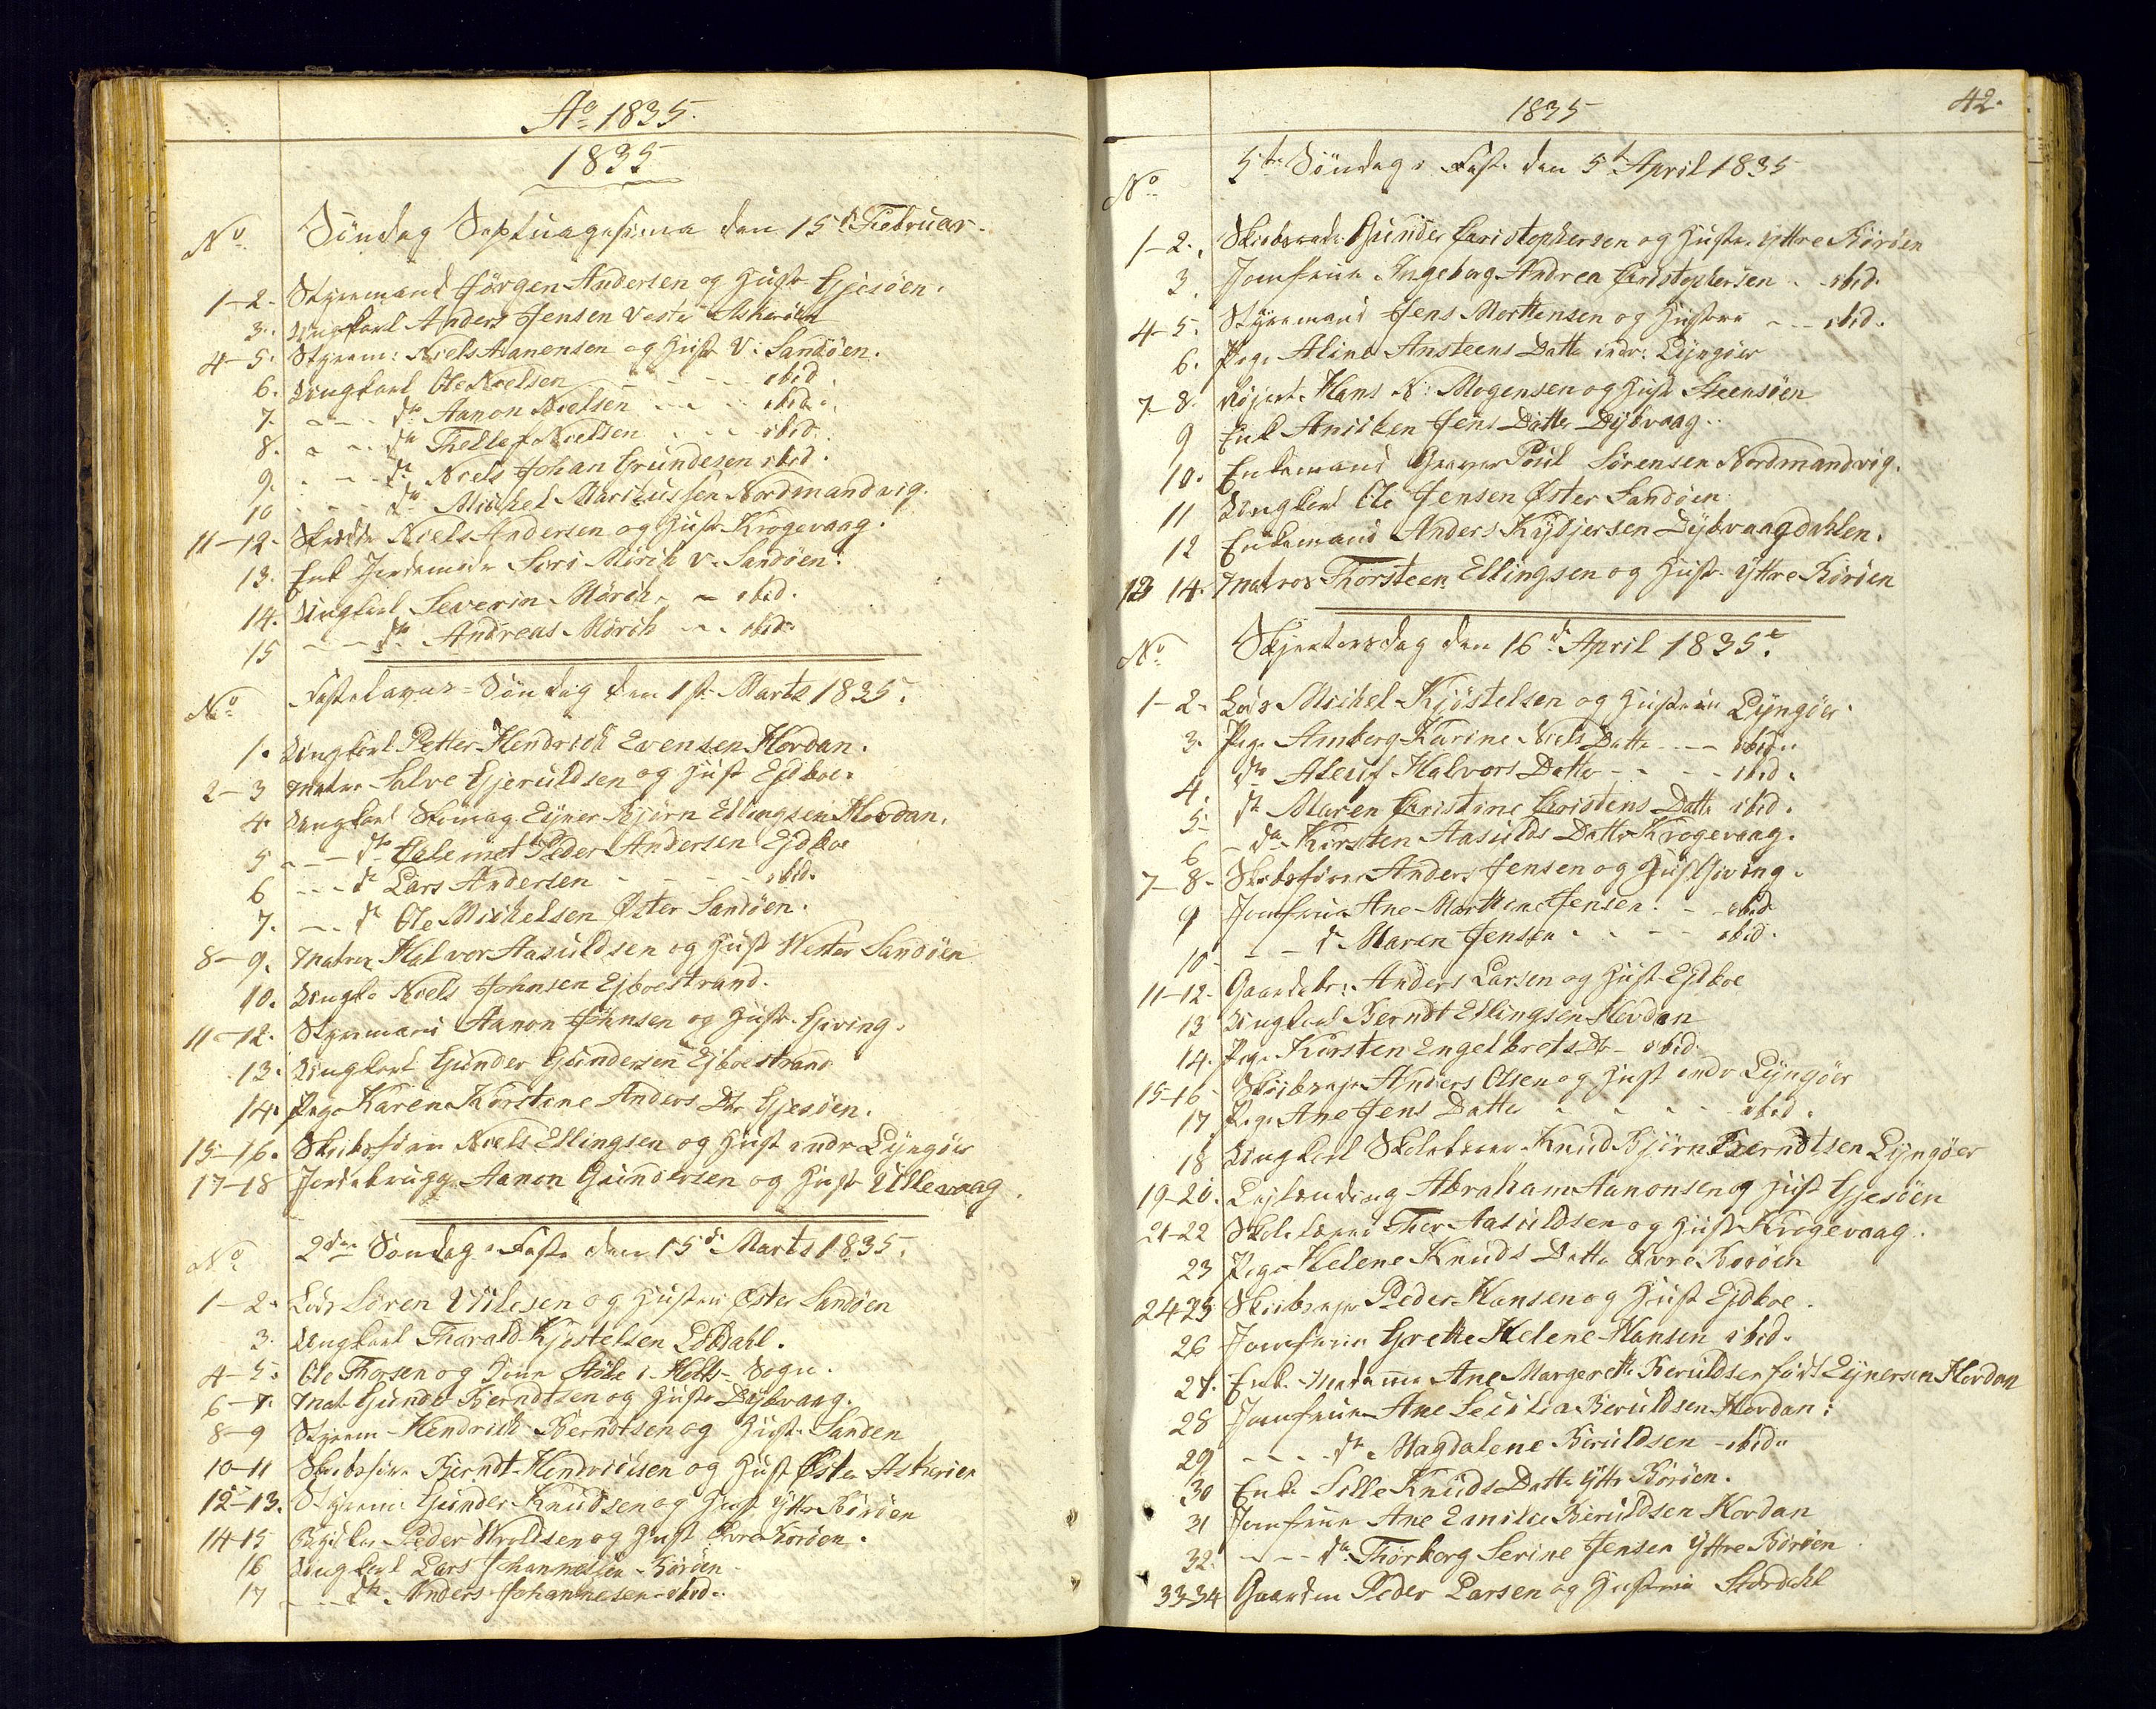 Ao 1835.
1835
No Söndag Septuagesima den 15de Februar.
1-2. Styrmand Jörgen Andersen og Hustr Gjesöen.
3. Ungkarl Anders Jensen Vester Askeröen
4-5. Styrm: Niels Aanensen og Hustr V: Sandöen.
6. Ungkarl Ole Nielsen - - - - ibid
7. - - - do Aanon Nielsen - - - ibid.
8. - - do Thellef Nielsen - - - ibid.
9. - - - do Niels Johan Gundesen ibid.
10 - - - do Michel Marcussen Nordmandvig.
11-12- Niels Andersen og Hustr Krogevaag.
13. Enk Jordemoder Siri Mörch V. Sandöen.
14. Ungkarl Severin Mörch - - ibid.
15 - - do Andreas Mörch - - ibid.
No Fastelavns-Söndag den 1ste Marts 1835.
1. Ungkarl Petter Hendrich Evensen Hovdan.
2-3 Matros Salve Gjeruldsen og Hustr Ejdboe.
4. Ungkarl Ejner Björn Ellingsen Hovdan.
5 - - - do Peder Andersen Ejdboe
6 - - - do Lars Andersen - - - - ibid.
7. - - - do Ole Michelsen Öster Sandöen.
8-9. Matros Halvor Aasuldsen og Hustr Wester Sandöen
10. Ungk. Niels Johnsen Ejboestrand.
11-12. Styrmand Aanon Johnsen og Hustr. Gjving.
13. Ungkarl Gunder Gundersen Ejboestrand
14. Pige Karen Kirstine Anders Dtr Gjesöen.
15-16. Skibsförer Niels Ellingsen og Hustr indr Lyngöer
17-18 Jordebrugr Aanon Gundersen og Hustr Ullevaag.
No 2den Söndag i Faste den 15de Marts 1835.
1-2. Lods Sören og Hustrue Öster Sandöen
3. Ungkarl Tharald Kjestelsen Lövdahl.
4-5. Ole Thorsen og Kone i Holts-Sogn.
6-7. Mat. Gunder Berndtsen og Hustr Dybvaag.
8-9 Styrm. Hendrich Berndtsen og Hustr. Sanden
10-11 Skibsförer Berndt Hendrichsen og Hustr Öster Askeröen
12-13. Styrm Gunder Knudsen og Hustr Yttre Böröen
14-15 Peder Wroldsen og Hustr Övre Böröen.
16 Ungkarl Lars Johannesen Böröen
17 - - do Anders Johannesen ibid.
1835
42.
No 5te Söndag i Faste den 5te April 1835
1-2. Gunder Christophersen og Hustr. Yttre Böröen
3. Jomfrue Ingeborg Andrea Christophersen - ibid.
4-5. Styrmand Jens Mortensen og Hustrue - - ibid.
6. Pige Aline Ansteens Datter indr: Lyngöer
7-8. Hans N: Mogensen og Hustr Steensöen
9 Enk Anichen Jens Datter Dybvaag.
10. Enkemand Graver Poul Sörensen Nordmandvig.
11 Ungkarl Ole Jensen Öster Sandöen
12 Enkemand Anders Dybvaagdahlen.
13 14. Matros Thorsteen Ellingsen og Hustr. Yttre Böröen
No Skjertorsdag den 16de April 1835.
1-2. Lods Michel Kjöstelsen og Hustrue Lyngöer.
3. Pige Amborg Karine Niels Datter - - - ibid.
4. do Aleuf Halvors Datter - - - - ibid.
5- do Maren Christine Christens Datter ibid.
6 - do Kirsten Aasulds Datter Krogevaag.
7-8- Skibsförer Anders Jensen og Hustr Gjving.
9 Jomfrue Ane Marthine Jensen. - - ibid
10 - - do Maren Jensen - - - ibid.
11-12- Gaardebr: Anders Larsen og Hustr Ejdboe
13 Ungkarl Berndt Ellingsen Hovdan
14. Pige Kirsten Engelbrets Dtr - ibid.
15-16- Anders Olsen og Hustr indr Lyngöer
17 Pige Ane Jens Datter - - - - ibid.
18 Ungkarl Skolelærer Knud Björn Berndtsen Lyngöer
19-20. Abraham Aanonsen og Hustr Gjesöen
21-22 Skolelærer Thor Aasuldsen og Hustr Krogevaag.
23 Pige Helene Knuds Datter Övre Böröen
24-25 Peder Hansen og Hustr Ejdboe.
26 Jomfrue Grethe Helene Hansen ibid.
27. Enke Madame Ane Margerethe Beruldsen föd Ejnersen Hovdan
28 Jomfrue Ane Secilia Beruldsen Hovdan:
29 - - - do Magdalene Beruldsen - ibid.
30 Enke Sille Knuds Datter Yttr Böröen.
31 Jomfrue Ane Emilie Beruldsen Hovdan
32. - - - do Thorborg Serine Jensen Yttre Böröen
33-34 Gaardm Peder Larsen og Hustrue Stordahl